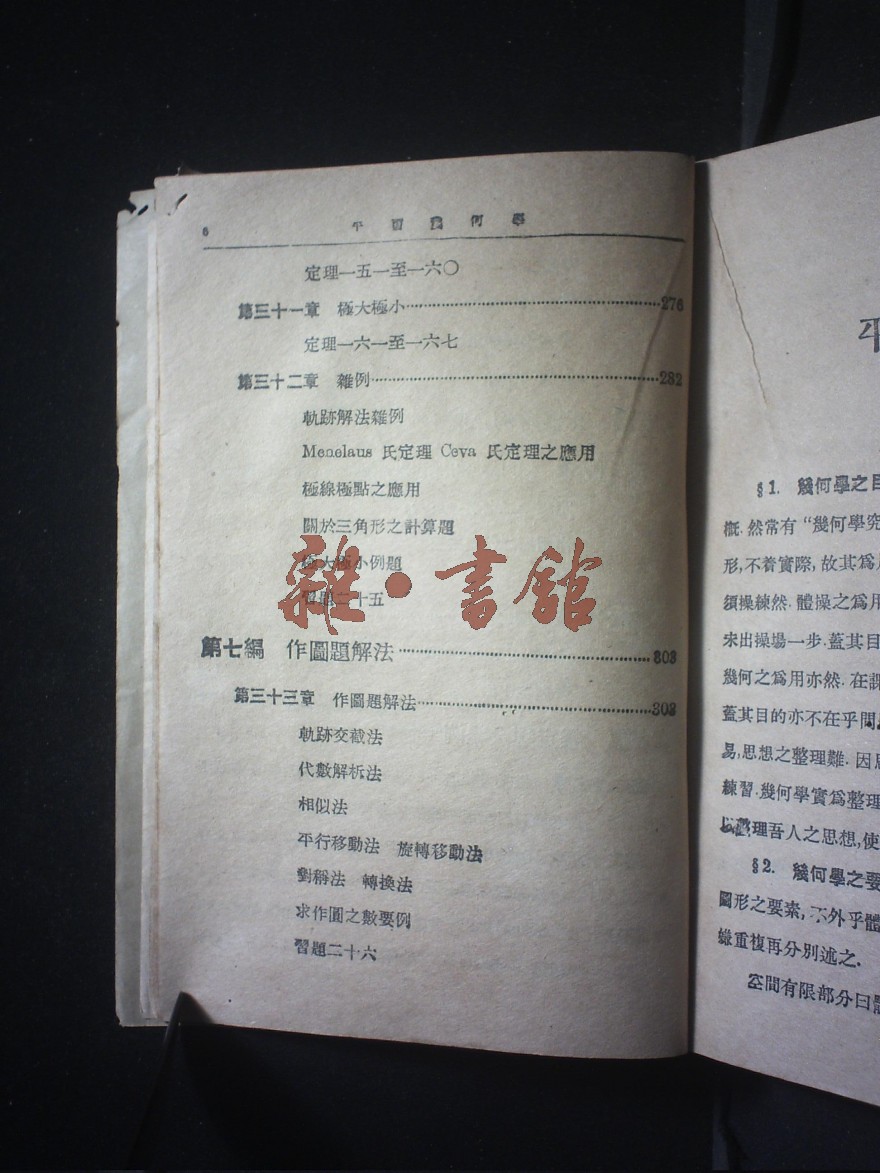 6 平面幾何學
定理一五一至一六〇
第三十一章 極大極小……276
定理一六一至一六七
第三十二章 雜例……282
軌跡解法雜例
Menelaus 氏定理 Ceva 氏定理之應用
極線極點之應用
關於三角形之計算題
極大極小例題
習題二十五
雜·書館
第七編 作圖題解法……303
第三十三章 作圖題解法……303
軌跡交截法
代數解析法
相似法
平行移動法 旋轉移動法
對稱法 轉換法
求作圖之數要例
習題二十六
§1. 幾何學之目
概.然常有“幾何學究
形,不着實際,故其爲
須操練然.體操之爲用
未出操場一步.蓋其目
幾何之爲用亦然.在課
蓋其目的亦不在乎間
易,思想之整理難.因
練習.幾何學實爲整理
以整理吾人之思想,使
§2. 幾何學之要
圖形之要素,不外乎體
嫌重複再分別述之.
空間有限部分曰體